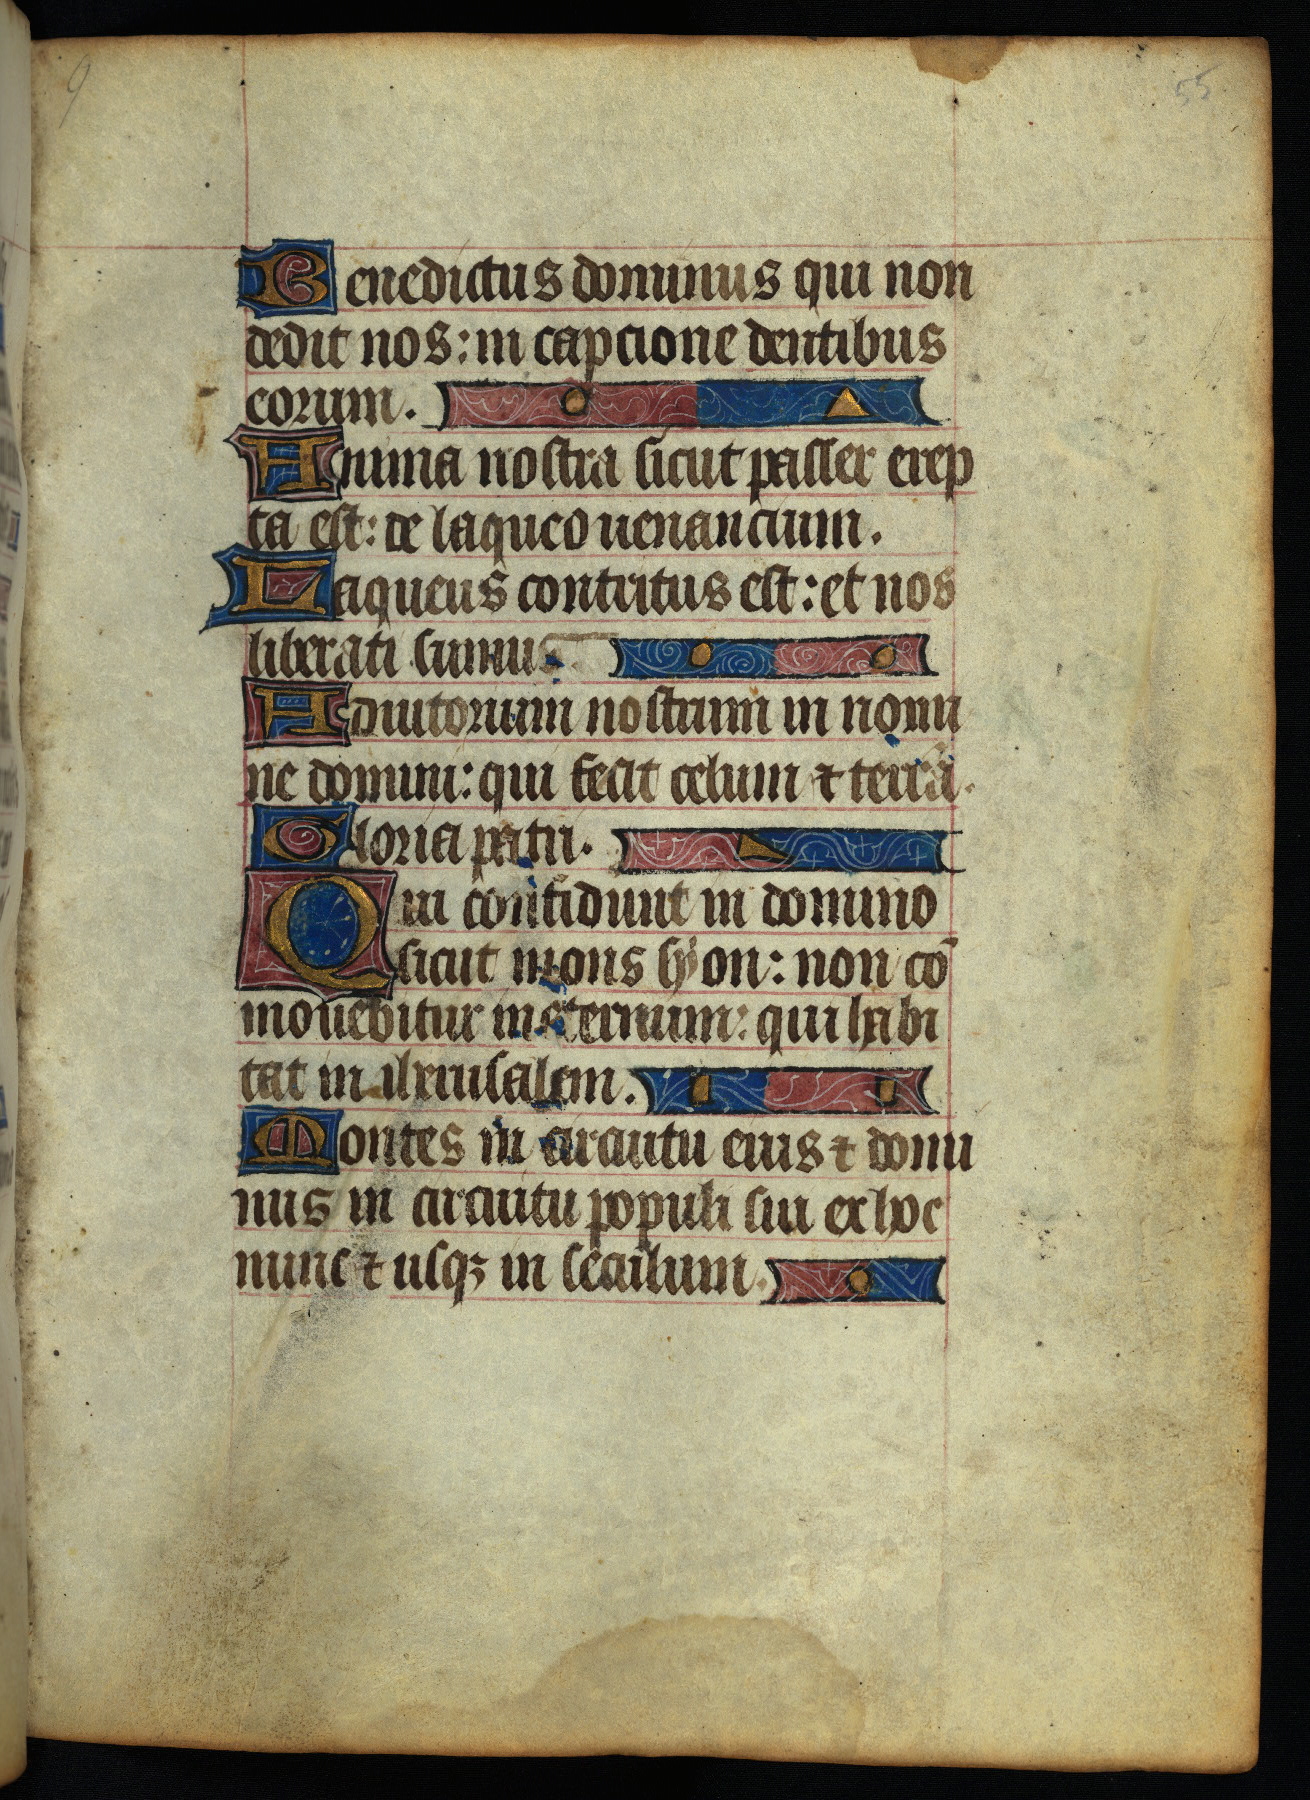 9
55
Benedictus dominus qui non
dedit nos: in capcione dentibus
eorum.
Anima nostra sicut passer erep
ta est: de laqueo uenancium.
Laqueus contritus est: et nos
liberati sumus.
Adiutorium nostrum in nomi
ne domini: qui fecit celum ⁊ terrā.
Gloria patri.
Qui confidunt in domino
sicut mons syon: non cō
mouebitur in eternum: qui habi
tat in iherusalem.
Montes in circuitu eius ⁊ domi
nus in circuitu populi sui ex hoc
nunc ⁊ usqꝫ in seculum.